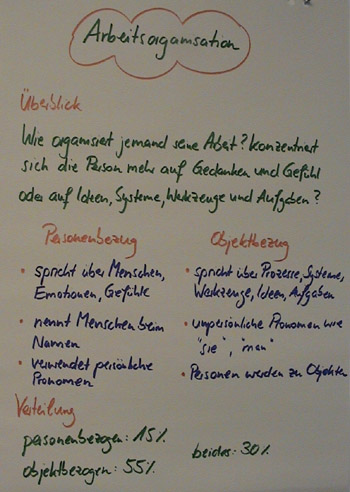 Arbeitsorganisation
Überblick
Wie organisiert jemand seine Arbeit? Konzentriert
sich die Person mehr auf Gedanken und Gefühl
oder auf Ideen, Systeme, Werkzeuge und Aufgaben?
Personenbezug
• spricht über Menschen,
Emotionen, Gefühle
• nennt Menschen beim
Namen
• verwendet persönliche
Pronomen
Objektbezug
• spricht über Prozesse, Systeme,
Werkzeuge, Ideen, Aufgaben
• unpersönliche Pronomen wie
"sie", "man"
• Personen werden zu Objekten
Verteilung
personenbezogen: 15%
objektbezogen: 55%
beides: 30%